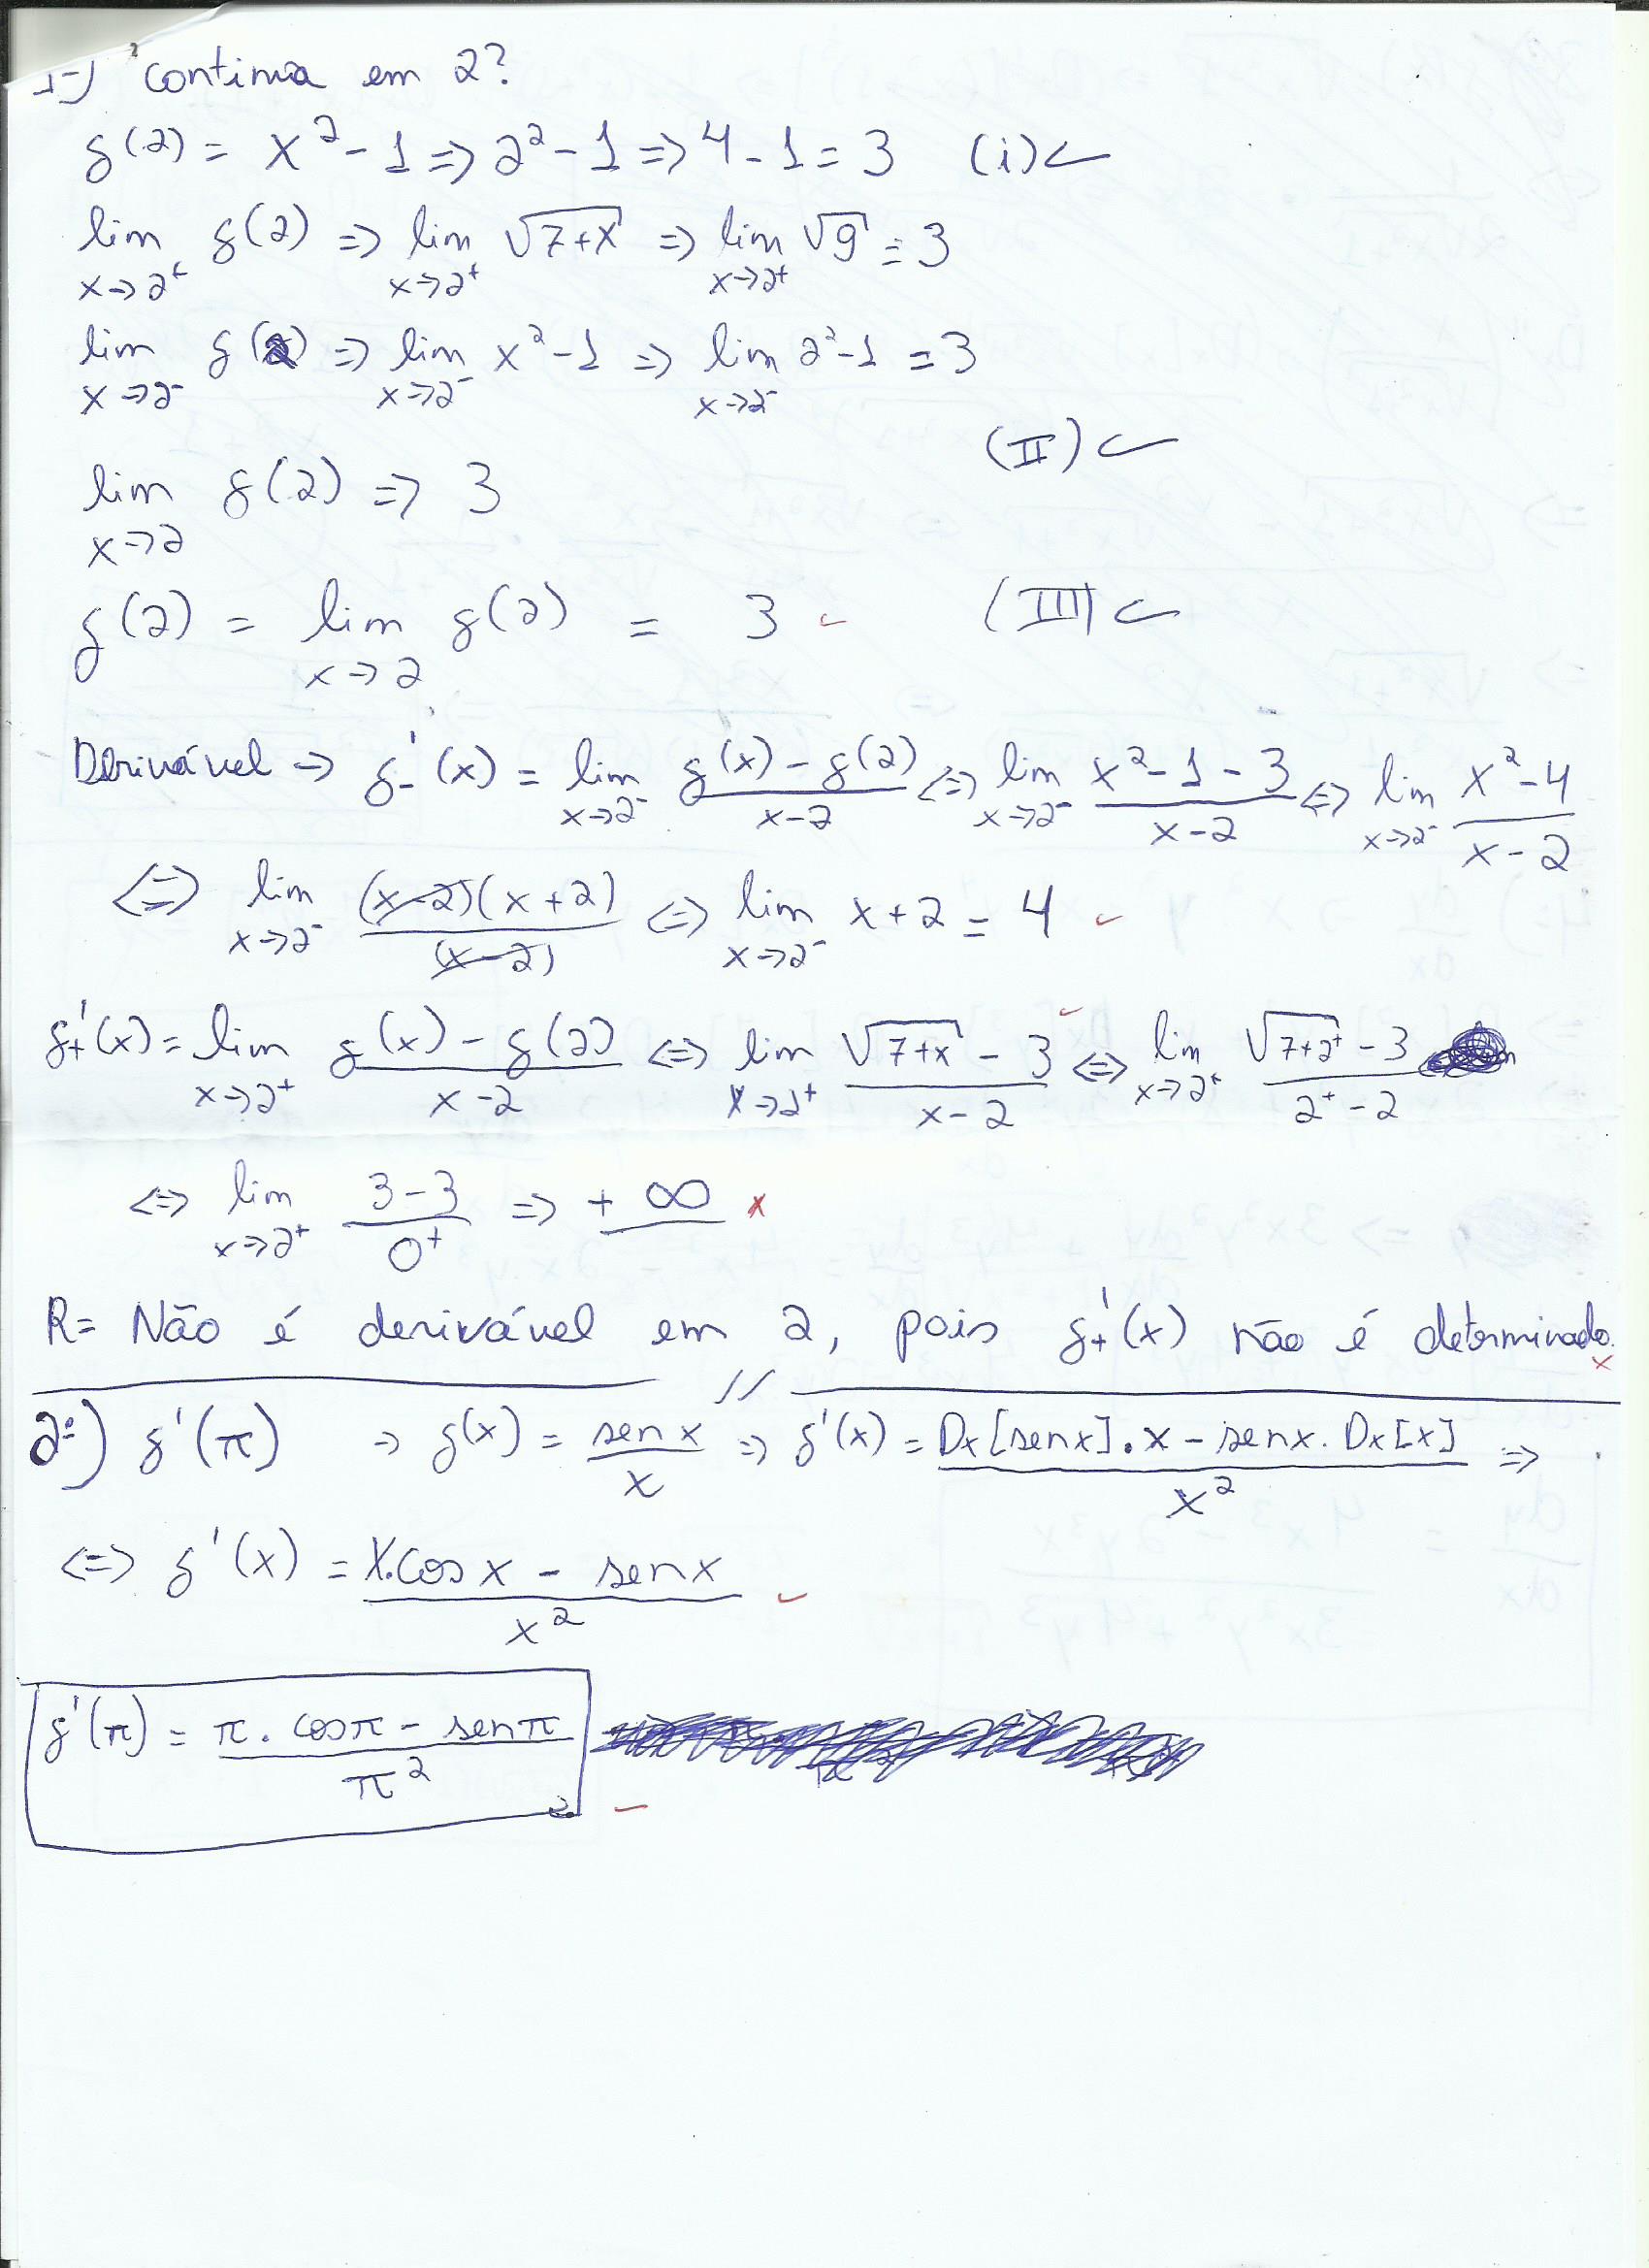 1-) contínua em 2?
f(2) = x² - 1 => 2² - 1 => 4 - 1 = 3 (i) ✓
lim x→2⁺ f(2) => lim x→2⁺ √(7+x) => lim x→2⁺ √9 = 3
lim x→2⁻ f(2) => lim x→2⁻ x² - 1 => lim x→2⁻ 2² - 1 = 3
(II) ✓
lim x→2 f(2) => 3
f(2) = lim x→2 f(2) = 3 ✓ (III) ✓
Derivável → f₋'(x) = lim x→2⁻ (f(x) - f(2))/(x - 2) <=> lim x→2⁻ (x² - 1 - 3)/(x - 2) <=> lim x→2⁻ (x² - 4)/(x - 2)
<=> lim x→2⁻ (x-2)(x+2)/(x-2) <=> lim x→2⁻ x + 2 = 4 ✓
f₊'(x) = lim x→2⁺ (f(x) - f(2))/(x - 2) <=> lim x→2⁺ (√(7+x) - 3)/(x - 2) ✓ <=> lim x→2⁺ (√(7+2⁺) - 3)/(2⁺ - 2)
<=> lim x→2⁺ (3 - 3)/0⁺ => + ∞ x
R = Não é derivável em 2, pois f₊'(x) não é determinado. x
2-) f'(π) → f(x) = sen x/x => f'(x) = (Dx[senx].x - senx.Dx[x])/x² =>
<=> f'(x) = (x.cos x - senx)/x² ✓
f'(π) = (π . cosπ - senπ)/π² ✓